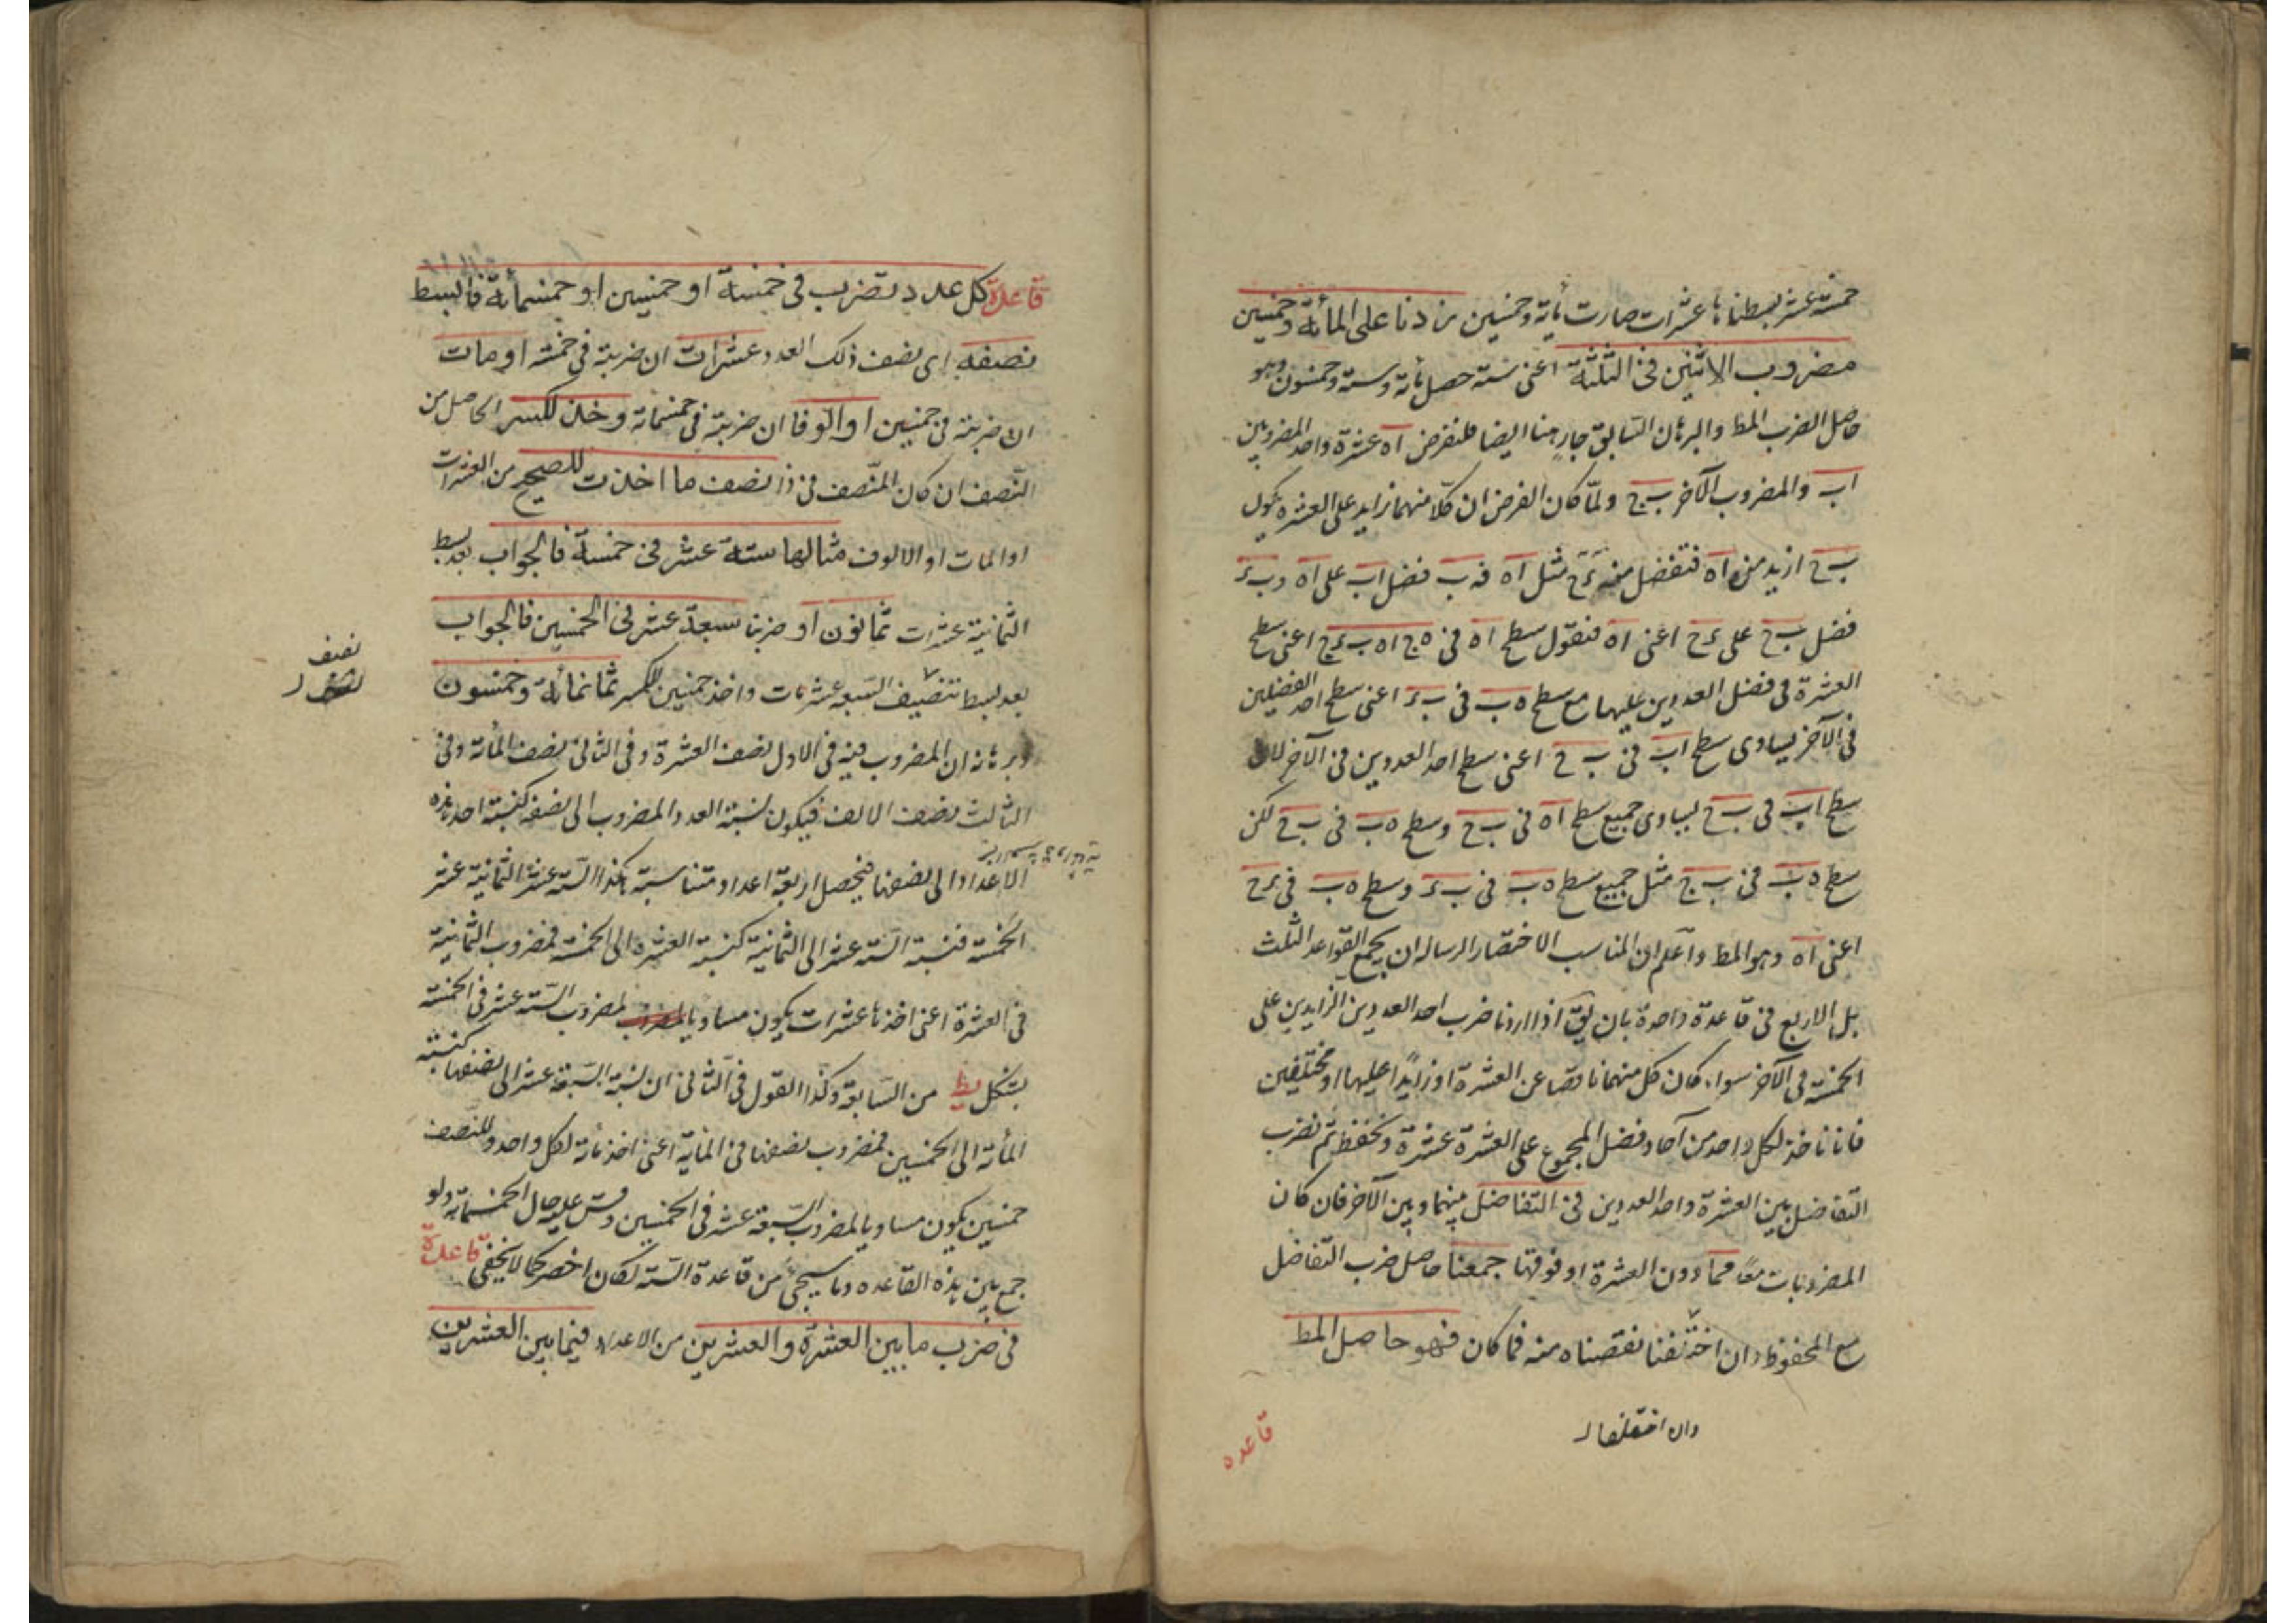 خمسة عشر بسطناها عشرات صارت مأية وخمسين زدنا على المأئة وخمسين
مضروب الاثنين فى الثلثة اعنى ستة حصل مأة وستة وخمسون وهو
حاصل الضرب المط والبرهان السابق جار ههنا ايضا فلنفرض اه عشرة واحد المضروبين
اب والمضروب الآخر ب ج ولمّا كان الفرض ان كلّا منهما زايد على العشرة يكون
ب ج ازيد من اه فنفضل منه ء ج مثل اه فه ب فضل اب على اه و ب ء
فضل ب ج على ء ج اعنى اه فنقول سطح اه فى اعنى سطح
العشرة فى فضل العددين عليها مع سطح ه ب فى ب ء اعنى سطح احد الفضلين
فى الآخر يساوى سطح اب فى ب ج اعنى سطح احد العددين فى الآخر لان
سطح اب فى ب ج يساوى جميع سطح اه فى ب ج وسطح ه ب فى ب ج لكن
سطح ه ب فى ب ج مثل جميع سطح ه ب فى ب ء وسطح ه ب فى ء ج
اعنى اه وهو المط واعلم ان المناسب لاختصار الرساله ان يجمع القواعد الثلث
بل الاربع فى قاعدة واحدة بان يق اذا اردنا ضرب احد العددين الزايدين على
الخمسة فى الآخر سواء كان كل منهما ناقصا عن العشرة او زايدًا عليها او مختلفين
فانا ناخذ لكل واحد من آحاد فضل المجموع على العشرة عشرة ونحفظ ثم نضرب
التفاضل بين العشرة واحد العددين فى التفاضل بينها وبين الآخر فان كان
المضروبات معًا مما دون العشرة او فوقها جمعنا حاصل ضرب التفاضل
مع المحفوظ وان اختلفنا نقصناه منه فما كان فهو حاصل المط
وان اختلفا
قاعده
قاعدة كل عدد تضرب فى خمسة او خمسين او خمسمأئة فابسط
نصفه اى نصف ذلك العدد عشرات ان ضربته فى خمسة او مات
ان ضربته فى خمسين او الوفا ان ضربته فى خمسمائة وخذ للكسر الحاصل من
النّصف ان كان المنّصف فردا نصف ما اخذت للصحيح من العشرات
او المات او الالوف مثالها ستة عشر فى خمسة فالجواب بعد بسط
الثمانية عشرات ثمانون او ضربنا سبعة عشر فى الخمسين فالجواب
بعد بسط تنصيف السبعة عشر مات واخذ خمسين للكسر ثمانمائة وخمسون
نصف
وبرهانه ان المضروب فيه فى الاول نصف العشرة وفى الثانى نصف المأئة وفى
الثالث نصف الالف فيكون نسبة العدد المضروب الى نصفه كنسبة احد هذه
الاعداد الى نصفها فيحصل اربعة اعداد متناسبة هكذا الستة عشر الثمانية عشر
الخمسة فنسبة الستة عشر الى الثمانية كنسبة العشرة الى الخمسة فمضروب الثمانية
فى العشرة اعنى اخذها عشرات يكون مساويا لمضروب الستة عشر فى الخمسة
بشكل يط من السابعة وكذا القول فى الثانى ان نسبة السبعة عشر الى نصفها كنسبة
المأئة الى الخمسين فمضروب نصفها فى المأية اعنى اخذ مائة لكل واحد وللنصف
خمسين يكون مساويا لمضروب السبعة عشر فى الخمسين وقس عليه حال الخمسمائة ولو
جمع بين هذه القاعده وما سيجئ من قاعدة الستة لكان اخصر كما لا يخفى قاعدة
فى ضرب ما بين العشرة والعشرين من الاعداد فيما بين العشرين